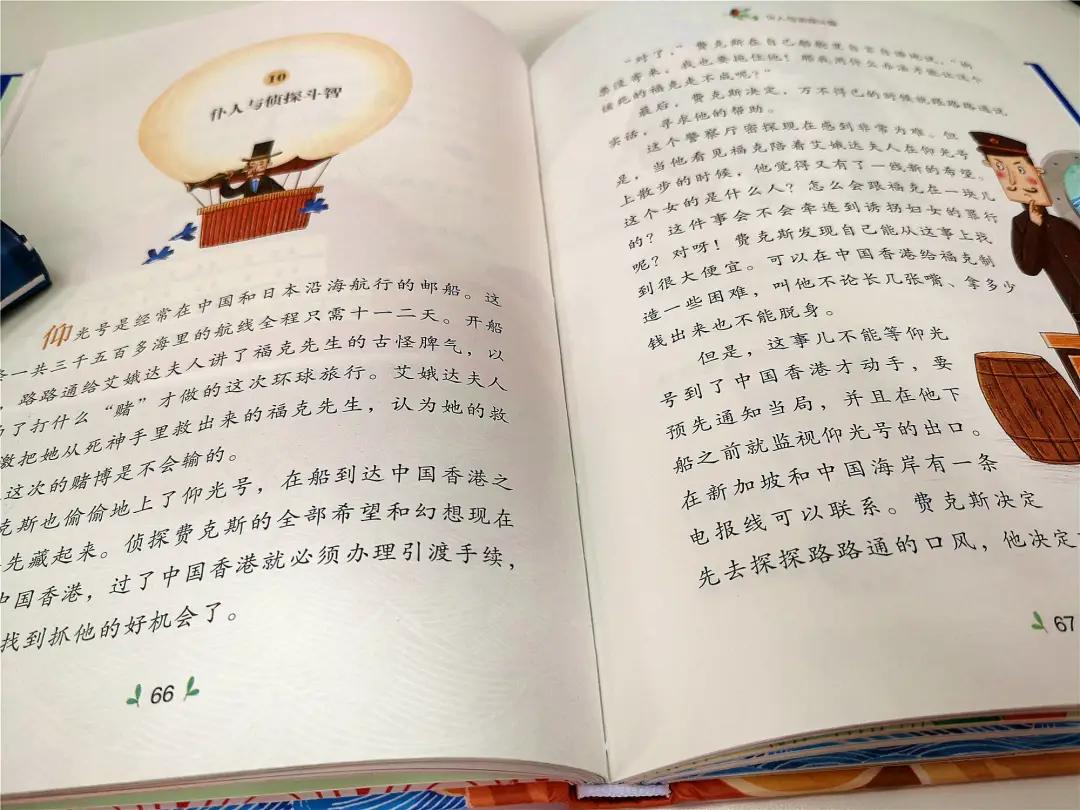 10
仆人与侦探斗智
仰光号是经常在中国和日本沿海航行的邮船。这
一共三千五百多海里的航线全程只需十一二天。开船
，路路通给艾娥达夫人讲了福克先生的古怪脾气，以
了打什么“赌”才做的这次环球旅行。艾娥达夫人
激把她从死神手里救出来的福克先生，认为她的救
这次的赌博是不会输的。
克斯也偷偷地上了仰光号，在船到达中国香港之
先藏起来。侦探费克斯的全部希望和幻想现在
中国香港，过了中国香港就必须办理引渡手续，
找到抓他的好机会了。
66
仆人与侦探斗智
“对了，”费克斯在自己船舱里自言自语地说，
要逮带来，我也要拖住他！那我用什么办法才能让这个
该死的福克走不成呢？”
最后，费克斯决定，万不得已的时候就跟路路通说
实话，寻求他的帮助。
这个警察厅密探现在感到非常为难。但
是，当他看见福克陪着艾娥达夫人在仰光号
上散步的时候，他觉得又有了一线新的希望。
这个女的是什么人？怎么会跟福克在一块儿
的？这件事会不会牵连到诱拐妇女的罪行
呢？对呀！费克斯发现自己能从这事上找
到很大便宜。可以在中国香港给福克制
造一些困难，叫他不论长几张嘴、拿多少
钱出来也不能脱身。
但是，这事儿不能等仰光
号到了中国香港才动手，要
预先通知当局，并且在他下
船之前就监视仰光号的出口。
在新加坡和中国海岸有一条
电报线可以联系。费克斯决定
先去探探路路通的口风，他决定
67